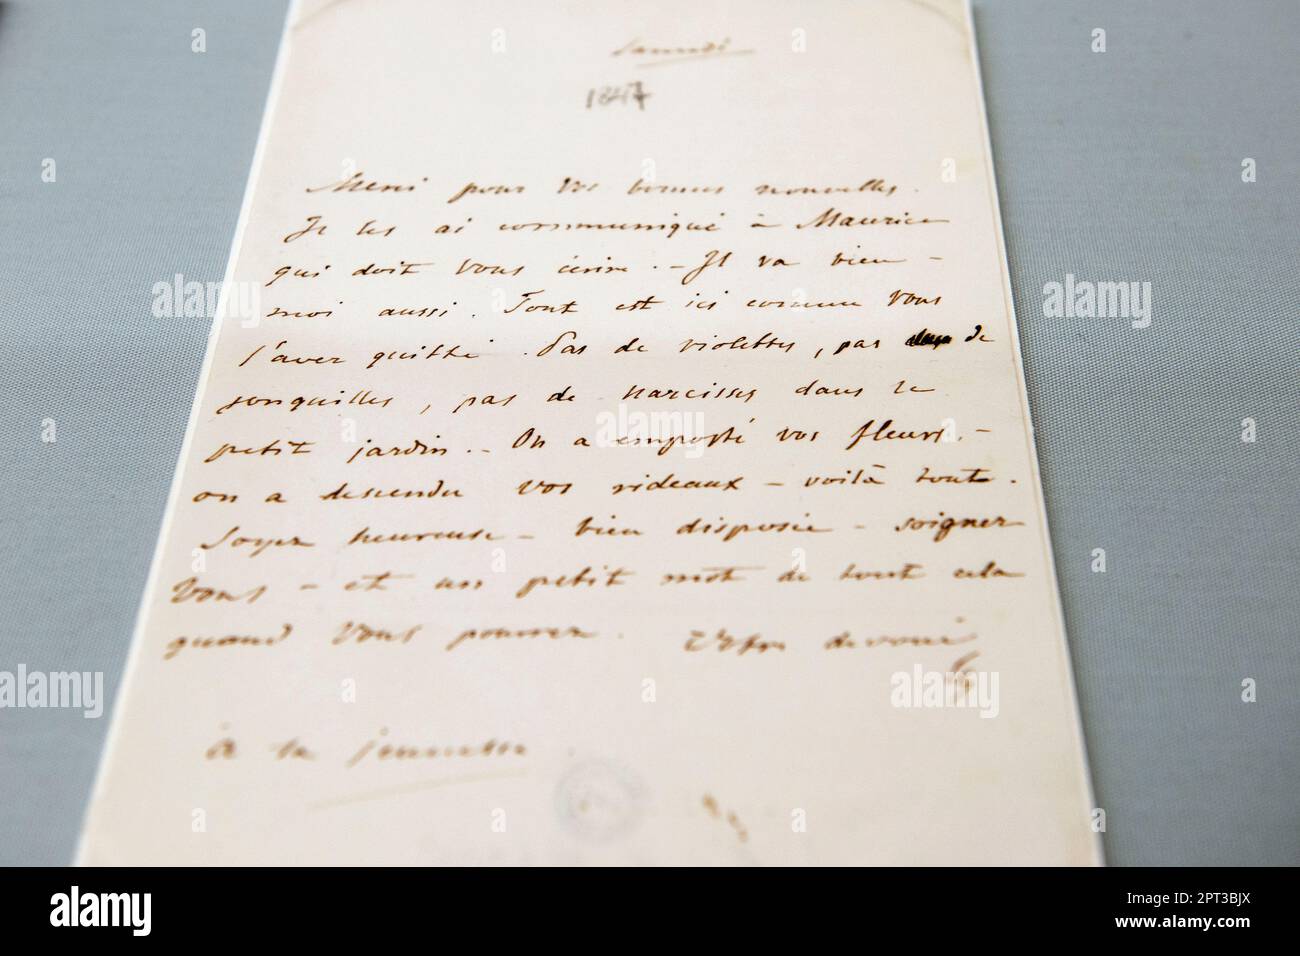 Samedi
1847
Merci pour vos bonnes nouvelles.
Je les ai communiqué à Maurice
qui doit vous écrire. - Il va bien -
moi aussi. Tout est ici comme vous
l'avez quitté. Pas de violettes, pas de
jonquilles, pas de narcisses dans le
petit jardin. - On a emporté vos fleurs. -
on a descendu vos rideaux - voilà tout.
Soyez heureuse - bien disposée - soignez
vous - et un petit mot de tout cela
quand vous pourrez. Votre devoué
Ch
à la jeunesse
alamy
Image ID: 2PT3BJX
www.alamy.com